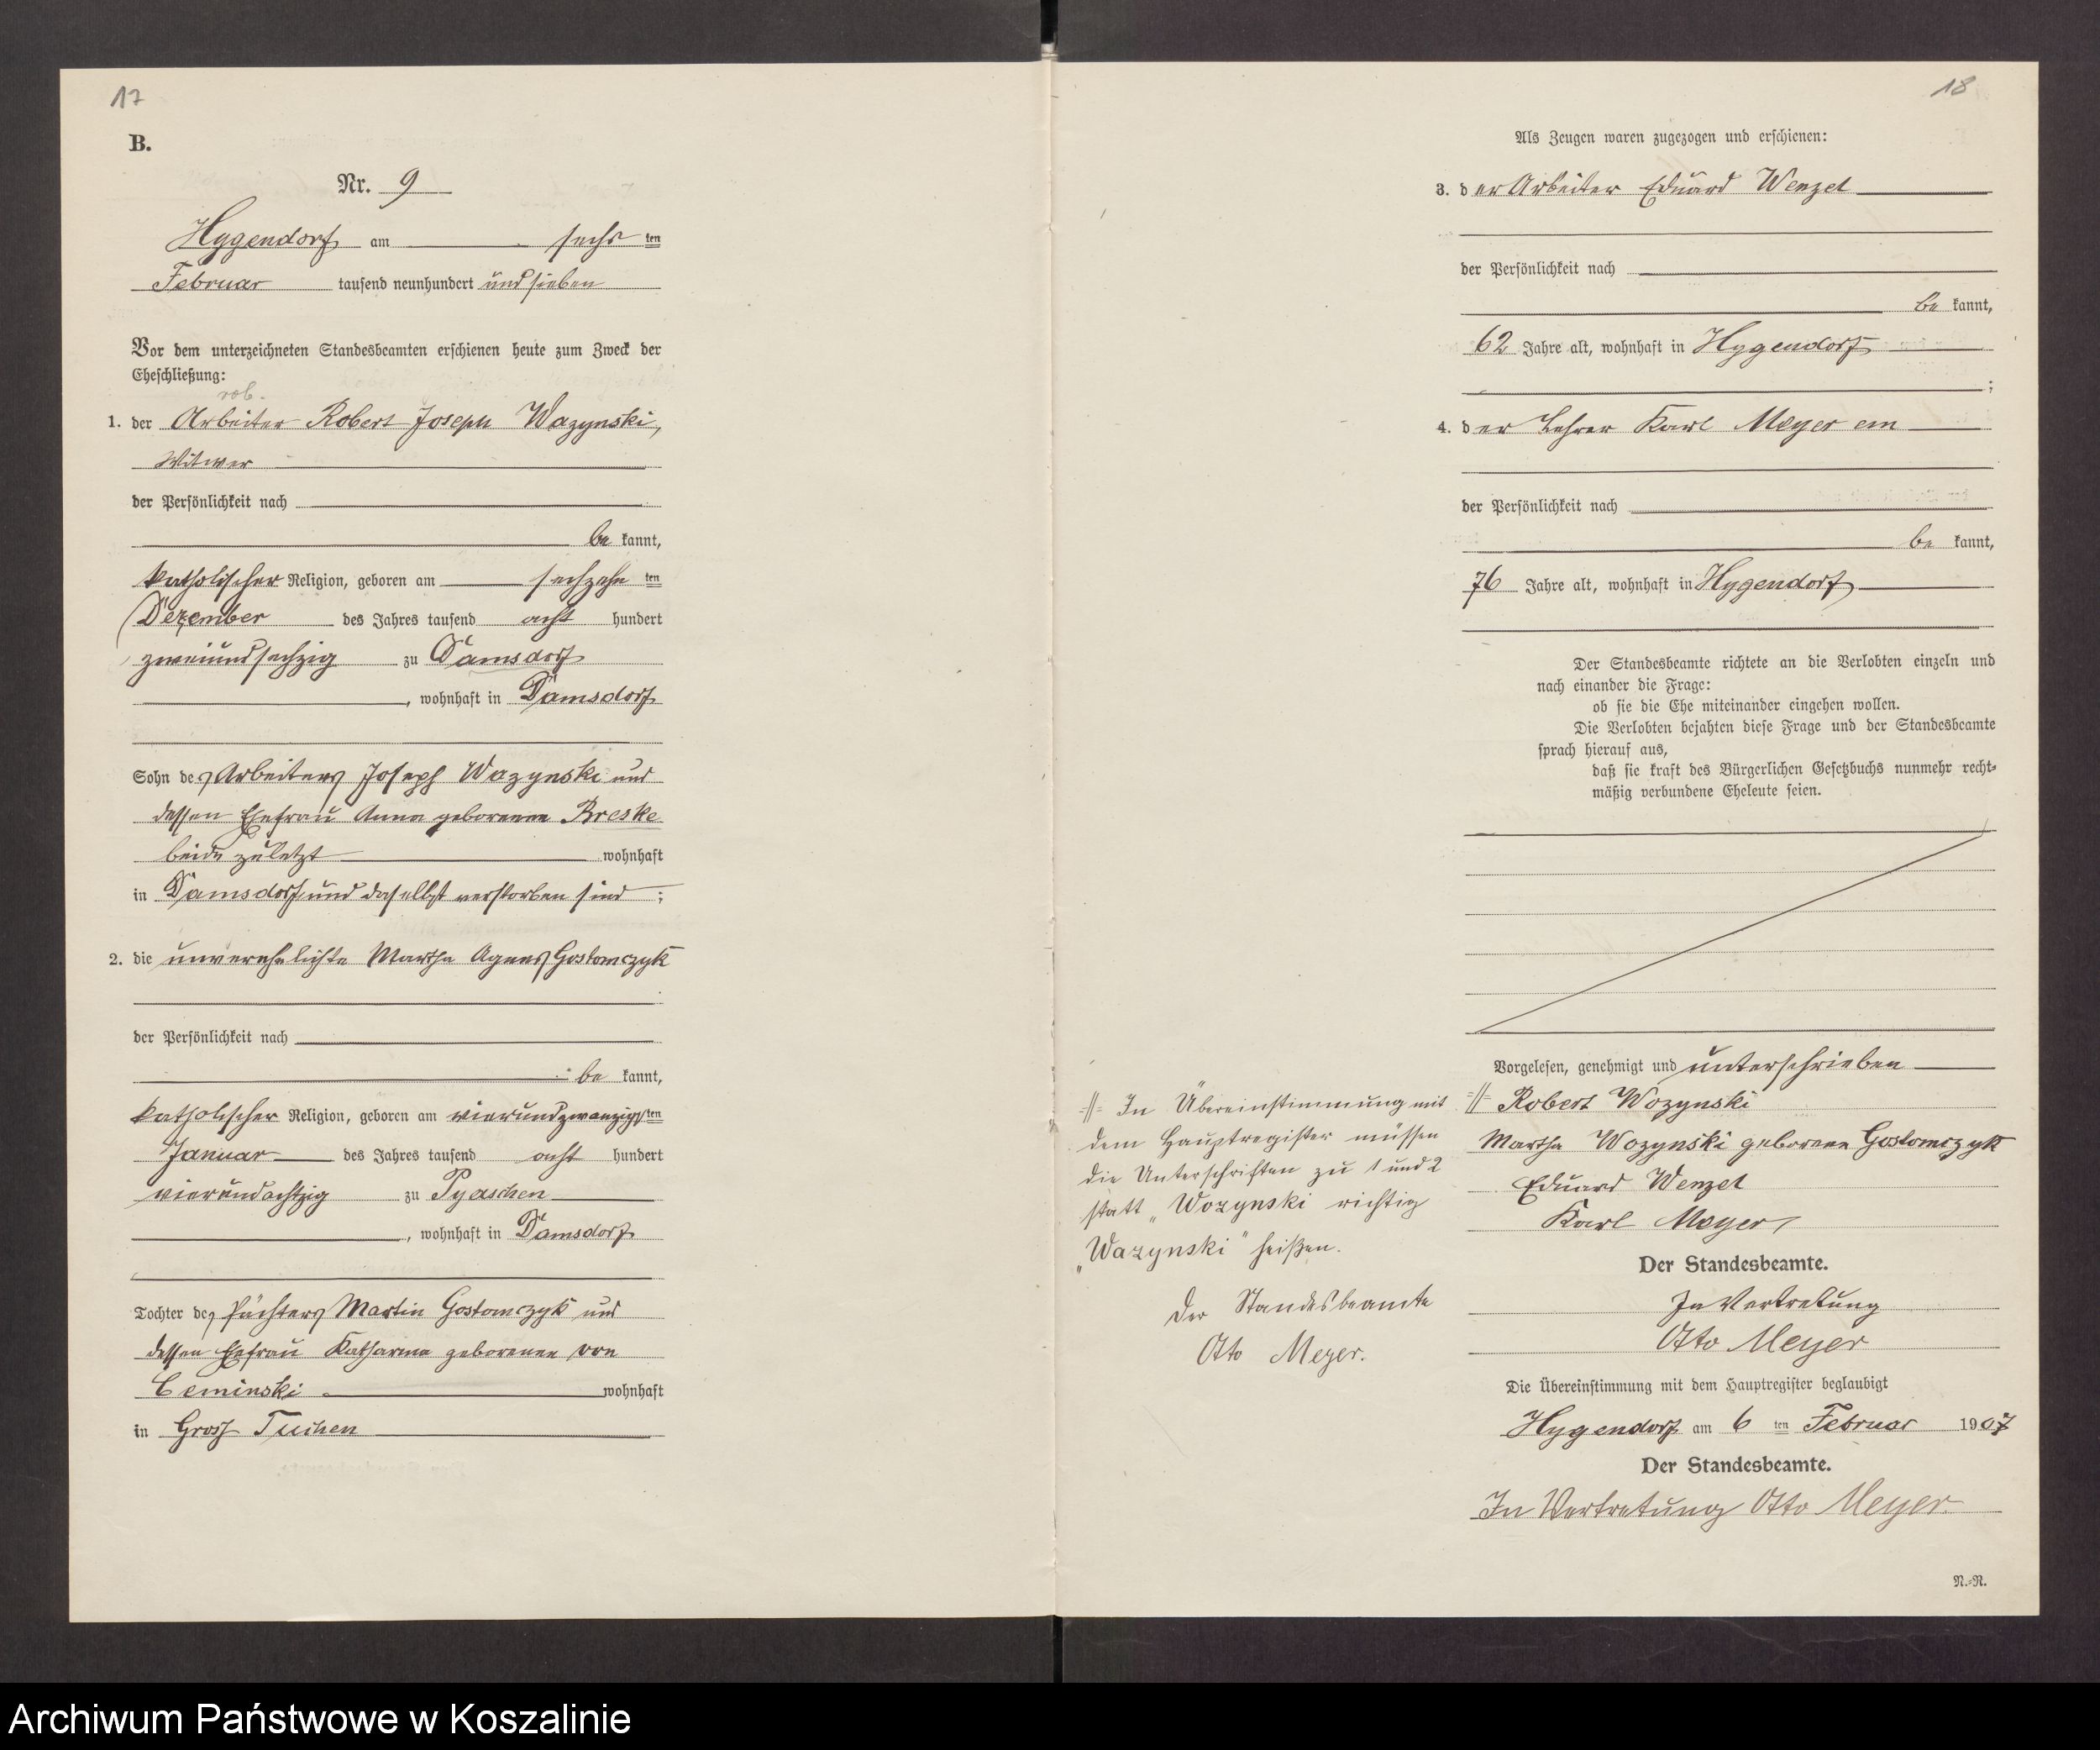 17
B.
Nr. 9
Hygendorf am sechs ten
Februar tausend neunhundert und sieben
Vor dem unterzeichneten Standesbeamten erschienen heute zum Zweck der
Eheschließung:
rob.
1. der Arbeiter Robert Joseph Wazynski,
Witwer
der Persönlichkeit nach
be kannt,
katholischer Religion, geboren am sechzehn ten
Dezember des Jahres tausend acht hundert
zweiundsechzig zu Damsdorf
, wohnhaft in Damsdorf
Sohn des Arbeiters Joseph Wazynski und
dessen Ehefrau Anna geborenen Breske
beide zuletzt wohnhaft
in Damsdorf und daselbst verstorben sind ;
2. die unverehelichte Martha Agnes Gostomczyk
der Persönlichkeit nach
be kannt,
katholischer Religion, geboren am vierundzwanzigsten
Januar des Jahres tausend acht hundert
vierundachtzig zu Pyaschen
, wohnhaft in Damsdorf
Tochter des Pächters Martin Gostomczyk und
dessen Ehefrau Katharina geborenen von
Ceminski wohnhaft
in Groß Tuchen
18
Als Zeugen waren zugezogen und erschienen:
3. der Arbeiter Eduard Wenzel
der Persönlichkeit nach
be kannt,
62 Jahre alt, wohnhaft in Hygendorf
;
4. der Lehrer Karl Meyer em
der Persönlichkeit nach
be kannt,
76 Jahre alt, wohnhaft in Hygendorf
Der Standesbeamte richtete an die Verlobten einzeln und
nach einander die Frage:
ob sie die Ehe miteinander eingehen wollen.
Die Verlobten bejahten diese Frage und der Standesbeamte
sprach hierauf aus,
daß sie kraft des Bürgerlichen Gesetzbuchs nunmehr recht-
mäßig verbundene Eheleute seien.
Vorgelesen, genehmigt und unterschrieben
=//= Robert Wozynski
Martha Wozynski geborene Gostomczyk
Eduard Wenzel
Karl Meyer
Der Standesbeamte.
In Vertretung
Otto Meyer
Die Übereinstimmung mit dem Hauptregister beglaubigt
Hygendorf am 6 ten Februar 1907
Der Standesbeamte.
In Vertretung Otto Meyer.
=//= In Übereinstimmung mit
dem Hauptregister müssen
die Unterschriften zu 1 und 2
statt „Wozynski richtig
„Wazynski" heißen.
Der Standesbeamte
Otto Meyer.
N.-R.
Archiwum Państwowe w Koszalinie